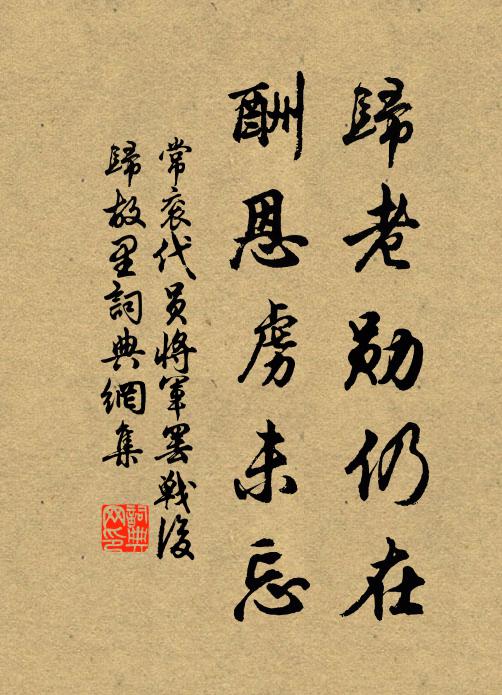 歸老勛仍在
酬恩虜未忘
常袞代員將軍罷戰後
歸故里詞典網集
詞典网印